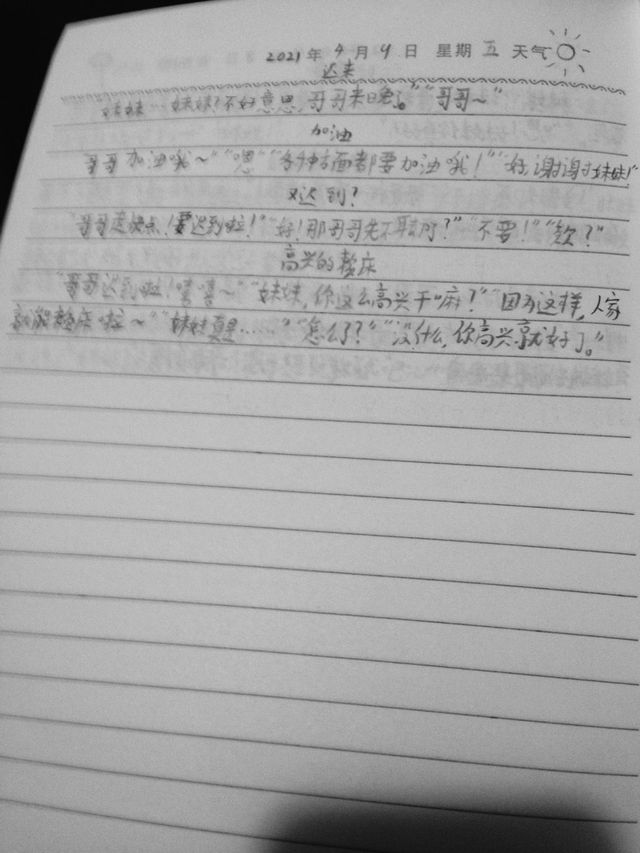 2021年4月9日 星期五 天气
迟来
妹妹…妹妹?不好意思,哥哥来晚了。”“哥哥~”
加油
哥哥加油哦~”“嗯”“各种方面都要加油哦!”“好,谢谢妹妹!”
又迟到?
“哥哥走快点!要迟到啦!”“好!那哥哥先不聊了?”“不要!”“欸?”
高兴的赖床
“哥哥迟到啦!嘻嘻~”“妹妹,你这么高兴干嘛?”“因为这样,人家
就能赖床啦~”“妹妹真是……”“怎么了?”“没什么,你高兴就好了。”